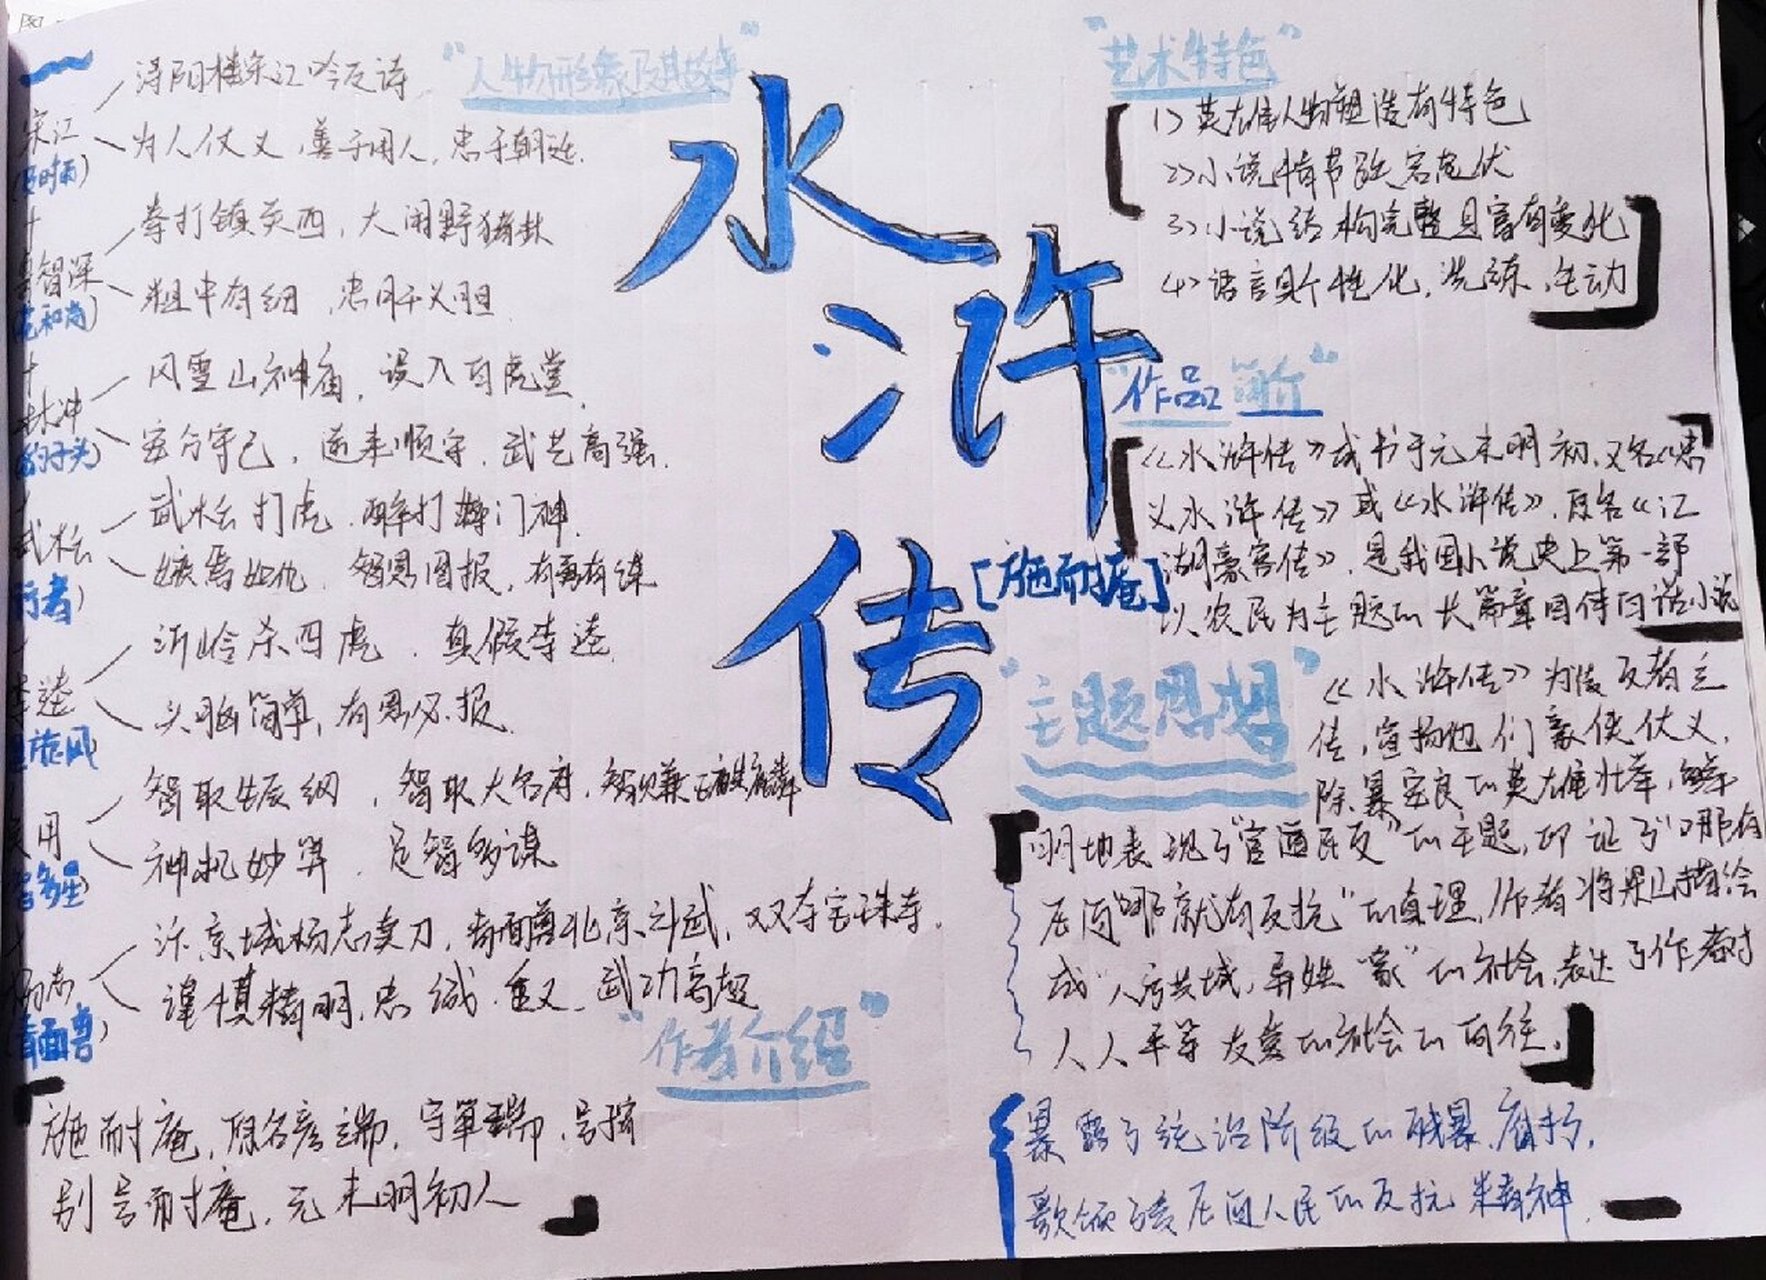 图
“人物形象及其故事”
宋江
(及时雨)
浔阳楼宋江吟反诗
为人仗义,善于用人,忠于朝廷.
鲁智深
(花和尚)
拳打镇关西,大闹野猪林
粗中有细,忠肝义胆.
林冲
(豹子头)
风雪山神庙,误入白虎堂,
安分守己,逆来顺守.武艺高强.
武松
行者)
武松打虎.醉打蒋门神.
嫉恶如仇.知恩图报,有勇有谋
李逵
黑旋风)
沂岭杀四虎.真假李逵.
头脑简单,有恩必报.
吴用
智多星)
智取生辰纲,智取大名府,
神机妙算.足智多谋
杨志
(青面兽)
汴京城杨志卖刀,青面兽北京斗武,双夺宝珠寺.
谨慎精明,忠诚.重义.武功高超
“作者介绍”
施耐庵,原名彦端.字肇瑞,号
别号耐庵.元末明初人
水
浒
传
[施耐庵]
“艺术特色”
1>英雄人物塑造有特色
2>小说情节跌宕起伏
3>小说结构完整且富有变化
4>语言具个性化,洗练,生动
“作品简介”
《水浒传》成书于元末明初.又名《忠
义水浒传》或《水浒传》.原名《江
湖豪客传》,是我国小说史上第一部
以农民为主题的长篇章回体白话小说
“主题思想”
《水浒传》为造反者立
传,宣扬他们豪侠仗义,
除暴安良的英雄壮举,鲜
明地表现了“官逼民反”的主题,印证了“哪有
压迫哪就有反抗”的真理,作者将梁山描绘
成“八方共域,异姓一家”的社会,表达了作者对
人人平等友爱的社会的向往.
暴露了统治阶级的残暴.腐朽,
歌颂了受压迫人民的反抗精神.